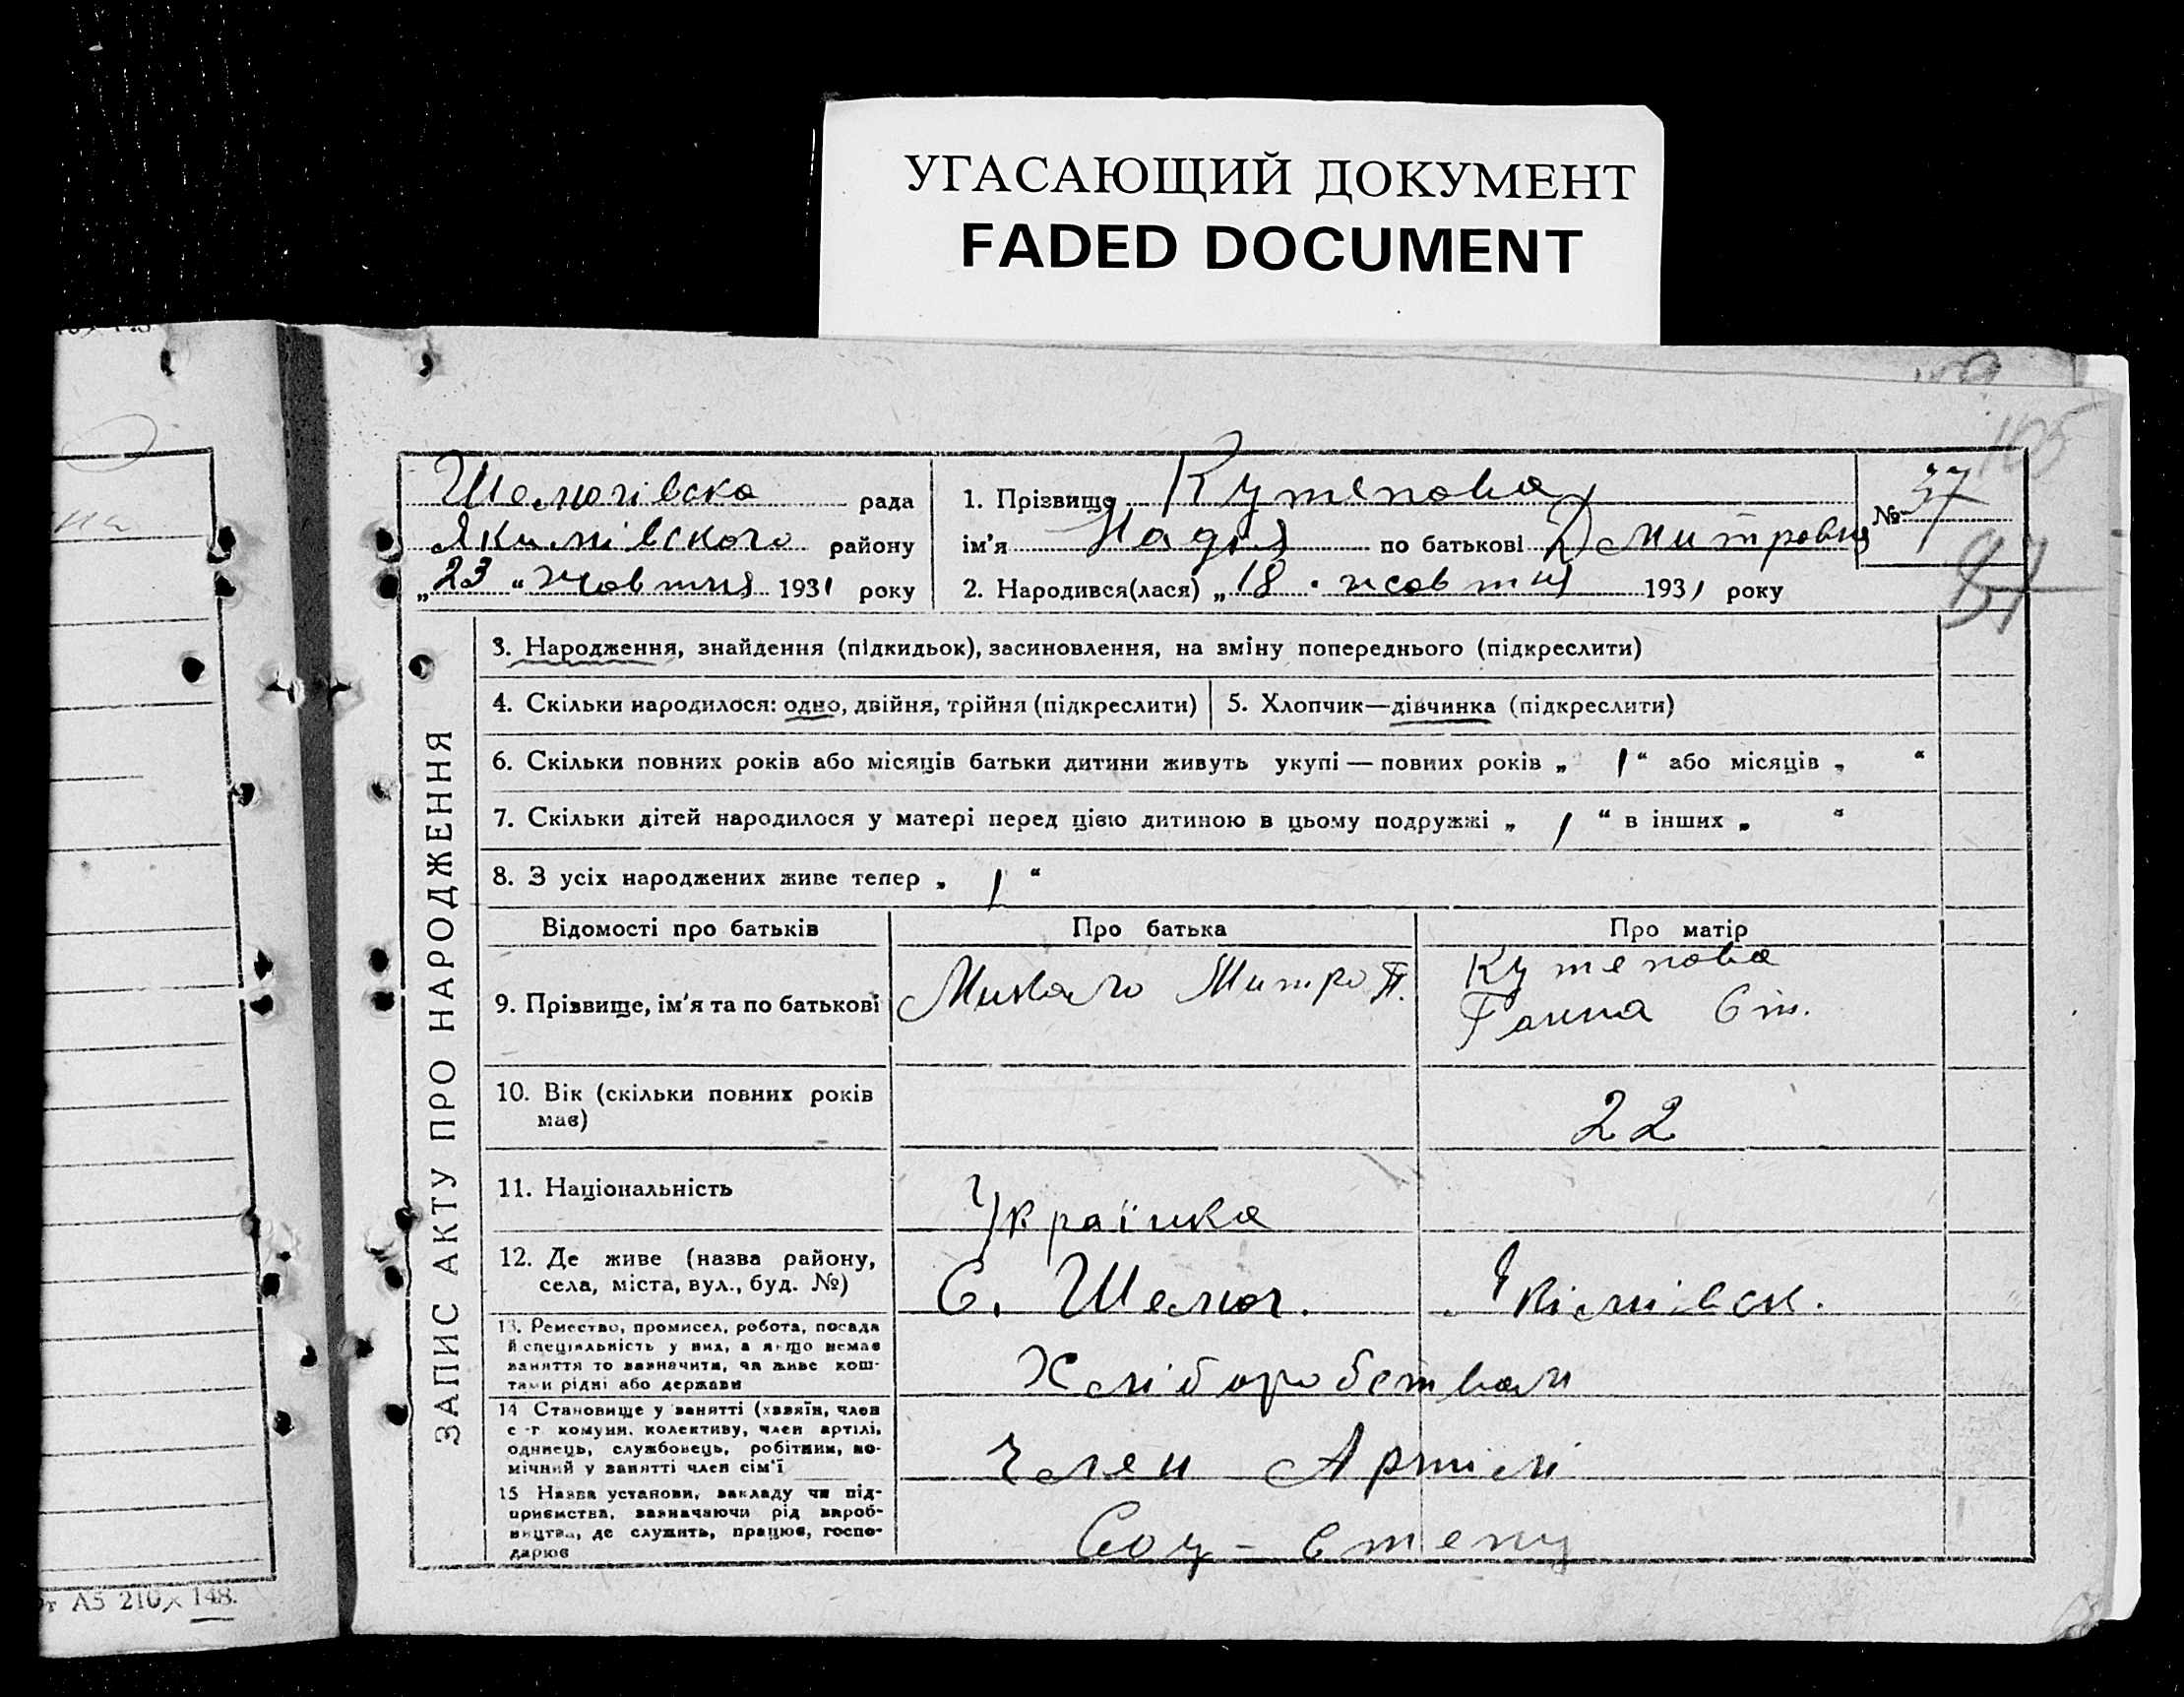 УГАСАЮЩИЙ ДОКУМЕНТ
FADED DOCUMENT
105
Шелюгівска рада
Якимівского району
„23 " жовтня 1931 року
1. Прізвище Кутепова
ім'я Надія по батькові Дмитровня
2. Народився(лася) „18 " жовтня 1931 року
№ 37
37
ЗАПИС АКТУ ПРО НАРОДЖЕННЯ
3. Народження, знайдення (підкидьок), засиновлення, на зміну попереднього (підкреслити)
4. Скільки народилося: одно, двійня, трійня (підкреслити)
5. Хлопчик—дівчинка (підкреслити)
6. Скільки повних років або місяців батьки дитини живуть укупі — повних років „ 1 " або місяців „ "
7. Скільки дітей народилося у матері перед цією дитиною в цьому подружжі „ 1 " в інших „ "
8. З усіх народжених живе тепер „ 1 "
Відомості про батьків
Про батька
Про матір
9. Прізвище, ім'я та по батькові
Митро П.
Кутепова
Ганна Єт.
10. Вік (скільки повних років
має)
22
11. Національність
Українка
12. Де живе (назва району,
села, міста, вул., буд. №)
С. Шелюг. Якімівск.
13. Ремество, промисел, робота, посада
й спеціяльність у них, а якщо немає
заняття то зазначити, чи живе кош-
тами рідні або держави
Хліборобством
14 Становище у занятті (хазяїн, член
с.-г. комуни, колективу, член артілі,
одинець, службовець, робітник, по-
мічний у занятті член сім'ї
Член Артілі
15 Назва установи, закладу чи під-
приємства, зазначаючи рід вироб-
ництва, де служить, працює, госпо-
дарює
Соц - степу
А5 210 × 148.